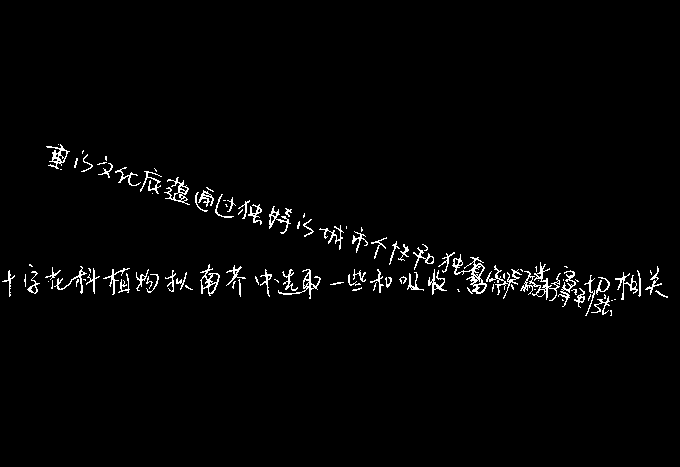 重的文化底蕴通过独特的城市个性和独
十字花科植物拟南芥中选取一些和吸收、富积磷密切相关